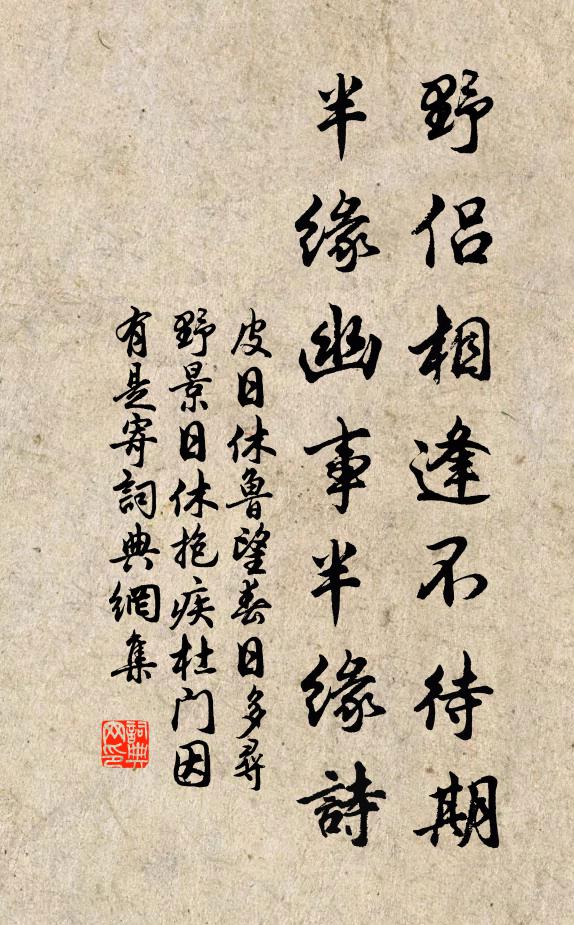 野侶相逢不待期
半緣幽事半緣詩
皮日休魯望春日多尋
野景日休抱疾杜门因
有是寄詞典網集
詞典
网印